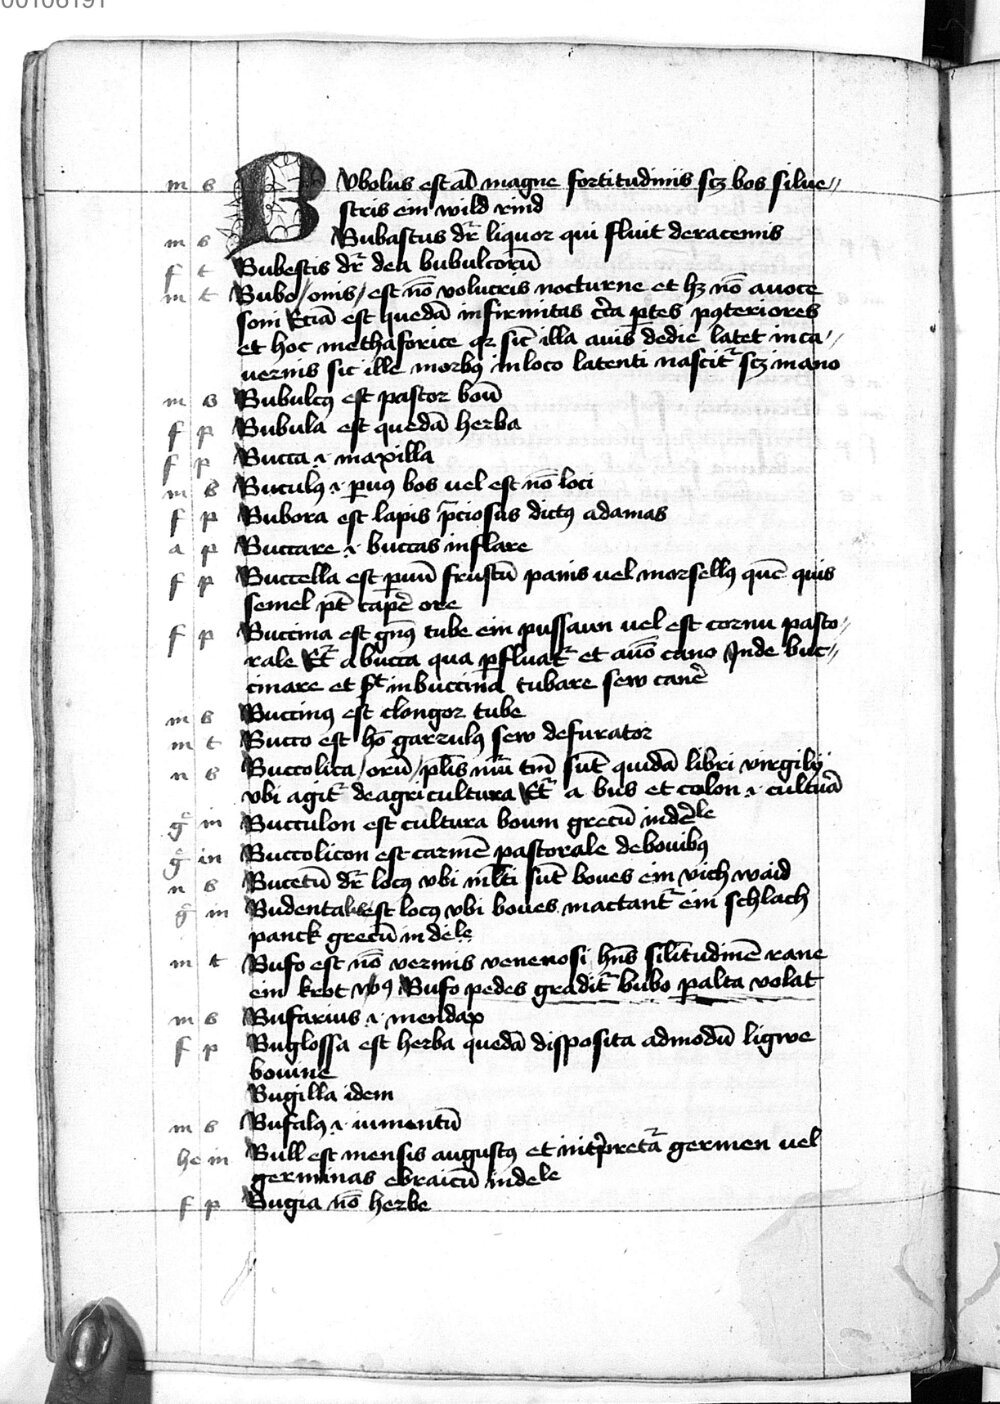 00106191
m s Bubolus est aīal magne fortitudinis scꝫ bos silue//
stris ein wild rind
m s Bubastus dr̄ liquor qui fluit deracemis
f t Bubestis dr̄ dea bubulcorū
m t Bubo/onis/est nō volucris nocturne et hꝫ nō a uoce
soni Etiā est quedā infirmitas c̄ca ꝑtes pꝯteriores
et hoc methaforice qꝛ sic̄ illa auis dedie latet in ca//
uernis sic ille morbꝯ inloco latenti nascit̄ scꝫ in ano
m s Bubulcꝯ est pastor boū
f p Bubula est quedā herba
f p Bucca .i. maxilla
m s Buculꝯ .i. ꝑuꝯ bos uel est nō loci
f p Bubora est lapis p̄ciosus dictꝯ adamas
a p Buccare .i. buccas inflare
f p Buccella est ꝑuū frustū panis uel morsellꝯ quē quis
semel pt̄ capē ore
f p Buccina est gn̄ꝯ tube ein pussaun uel est cornu pasto//
rale Et̄ a bucca qua ꝑfluat̄ et cano Inde buc//
cinare et inbuccina tubare sew canē
m s Buccinꝯ est clongor tube
m t Bucco est hō garrulꝯ sew defurator
n s Buccolica/orū/pl̄is nūi tm̄ sūt quidā libri virgilij
vbi agit̄ deagricultura Et̄ a bus et colon .i. cultura
g̊ in Bucculon est cultura boum grecū indēle
g̊ in Buccolicon est carmē pastorale debouibꝯ
n s Bucetū dr̄ locꝯ vbi ml̄ti sūt boues ein vich waid
g̊ in Budental est locꝯ vbi boues mactant̄ ein schlach
panck grecū indele
m t Bufo est nō vermis venenosi hn̄s silītudinē rane
ein krot Bufo pedes gradit̄ bubo ꝑ alta volat
m s Bufarius .i. mendax
f p Buglossa est herba quedā disposita admodū ligwe
bouine
Bugilla idem
m s Bufalꝯ .i. iumentū
he in Bull est mensis augustꝯ et int̄pretā germen uel
germinas ebraicū indele
f p Bugia nō herbe